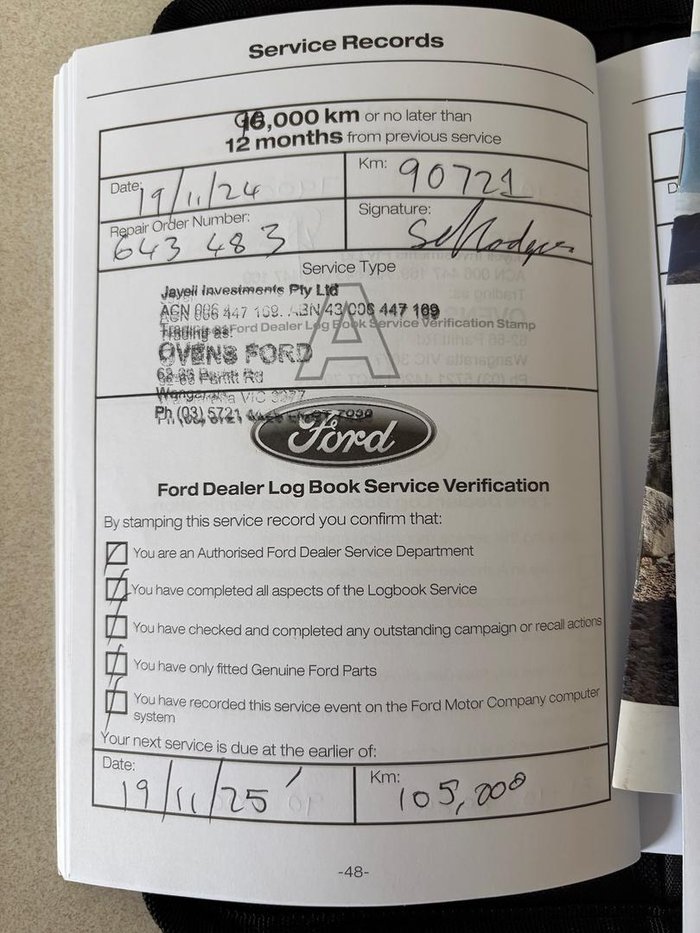 Service Records
,000 km or no later than
12 months from previous service
Date: 19/11/24
Km: 90721
Repair Order Number:
643 483
Signature:
Service Type
A
Jayeli Investments Pty Ltd
ACN 006 447 169. ABN 43 006 447 169
Trading as:
Ford Dealer Log Book Service Verification Stamp
OVENS FORD
Parfitt Rd
VIC
Ph (03) 5721
Ford
Ford Dealer Log Book Service Verification
By stamping this service record you confirm that:
You are an Authorised Ford Dealer Service Department
You have completed all aspects of the Logbook Service
You have checked and completed any outstanding campaign or recall actions
You have only fitted Genuine Ford Parts
You have recorded this service event on the Ford Motor Company computer
system
Your next service is due at the earlier of:
Date:
19/11/25
Km:
105,000
-48-